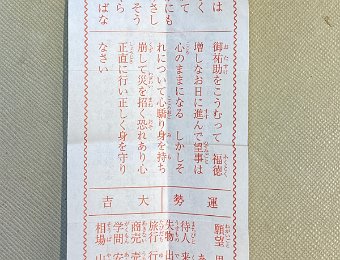 は
く
て
にも
さし
そう
ら
ばな
御祐助をこうむって　福徳
増しなお日に進んで望事は
心のままになる　しかしそ
れについて心驕り身を持ち
崩して災を招く恐れあり心
正直に行い正しく身を守り
なさい
運勢大吉
願望
待人　来
失物　出
旅行　行
商売
学問　安
相場